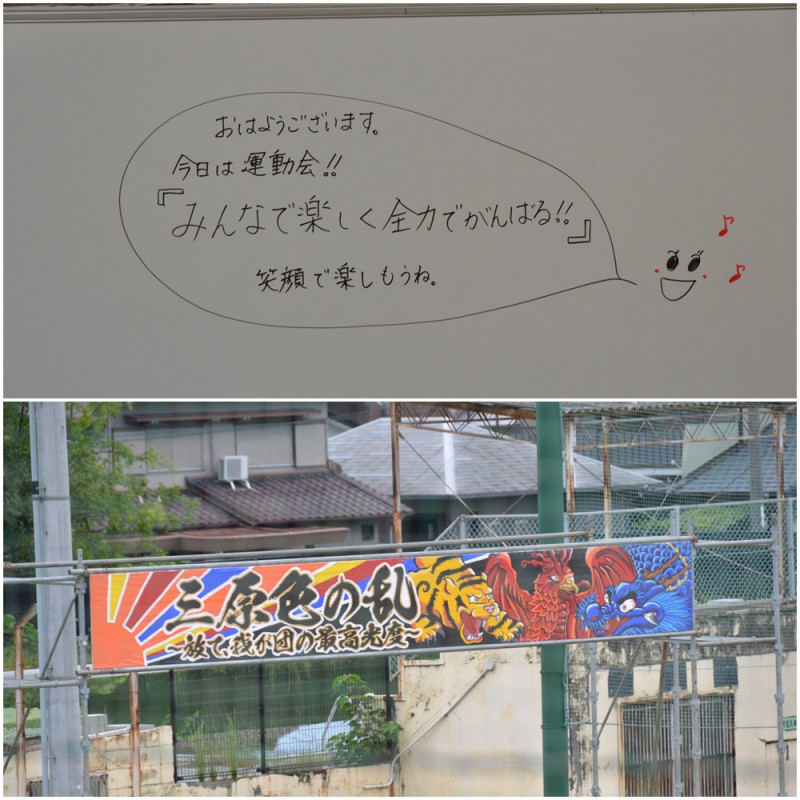 おはようございます。
今日は運動会!!
『みんなで楽しく全力でがんばる!!』
笑顔で楽しもうね。
三原色の乱
〜放て、我が団の最高光度〜